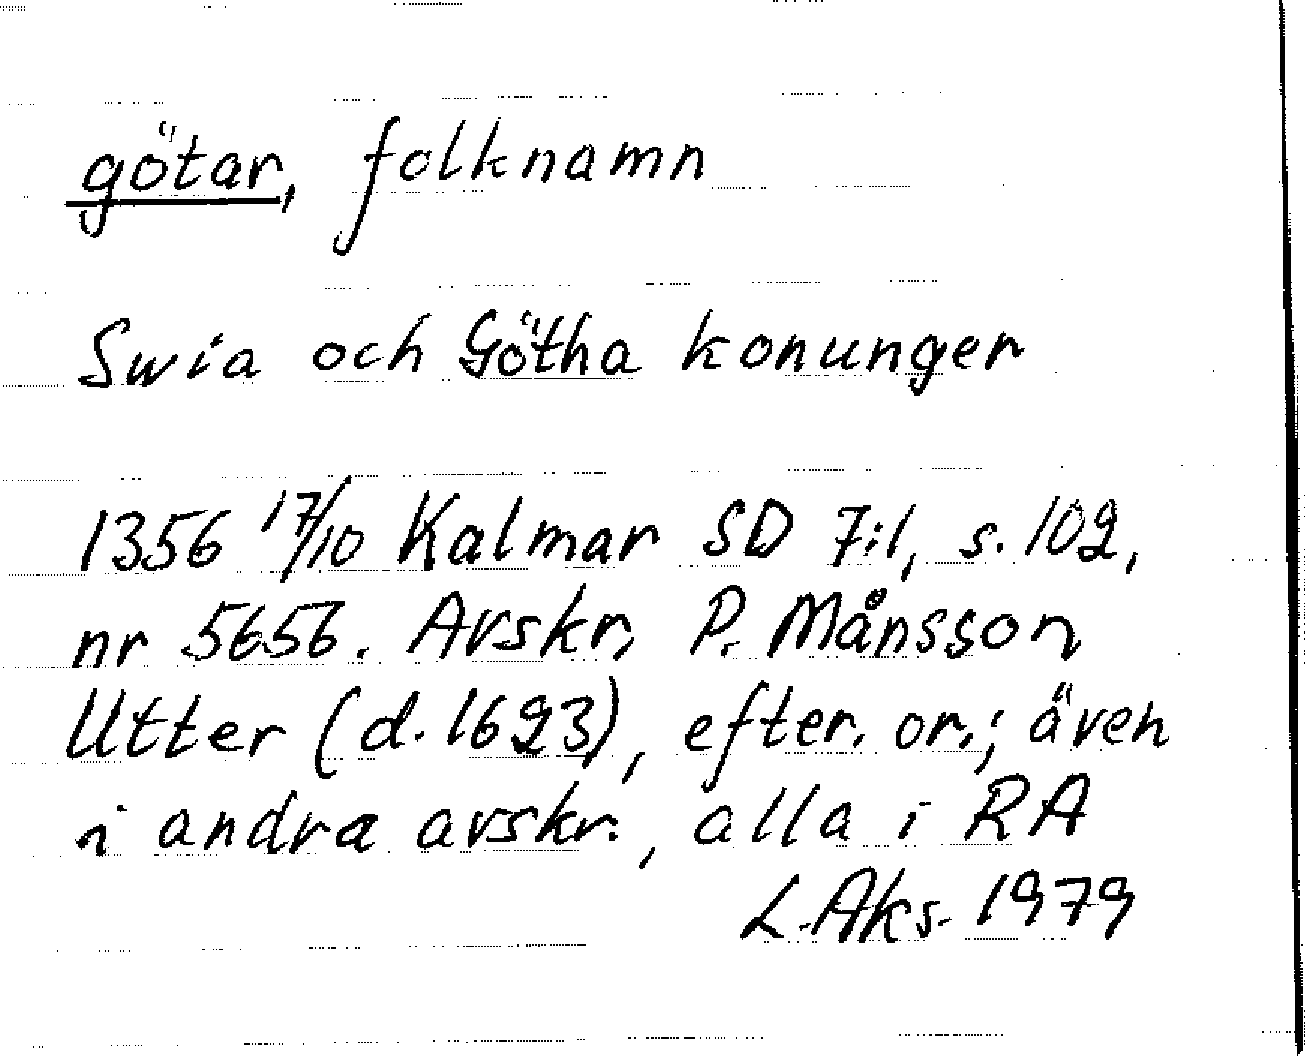 götar, folknamn
Swia och Götha konunger
1356 17/10 Kalmar SD 7:1, s. 102,
nr 5656. Avskr, P. Månsson
Utter (d. 1623), efter. or.; även
i andra avskr., alla i RA
L. Aks. 1979